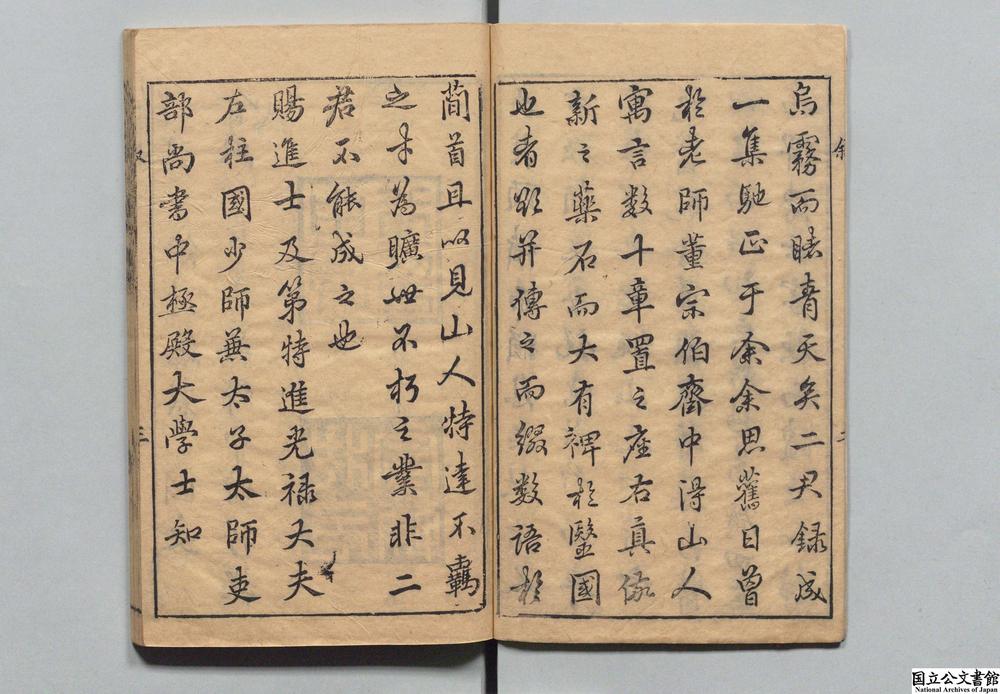 烏霧而睹青天矣二尹録成
一集馳正于余余思舊日曾
於老師董宗伯齋中得山人
寓言数十章置之座右真
新之藥石而大有裨於醫國
也者欲并傳之而綴数語於
簡首且以見山人特達不羈
之才為曠世不朽之業非二
君不能成之也
賜進士及第特進光禄大夫
左柱國少師兼太子太師吏
部尚書中極殿大學士知
叙
二
三
国立公文書館
National Archives of Japan